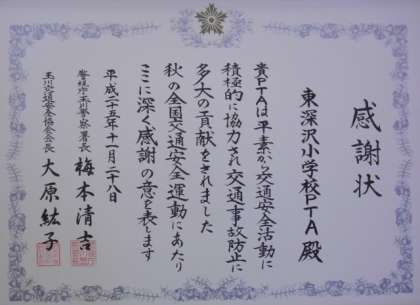 感謝状
東深沢小学校PTA殿
貴PTAは平素から交通安全活動に
積極的に協力され交通事故防止に
多大の貢献をされました
秋の全国交通安全運動にあたり
ここに深く感謝の意を表します
平成二十五年十一月二十八日
警視庁玉川警察署長 梅本清吉
玉川交通安全協会会長 大原紘子